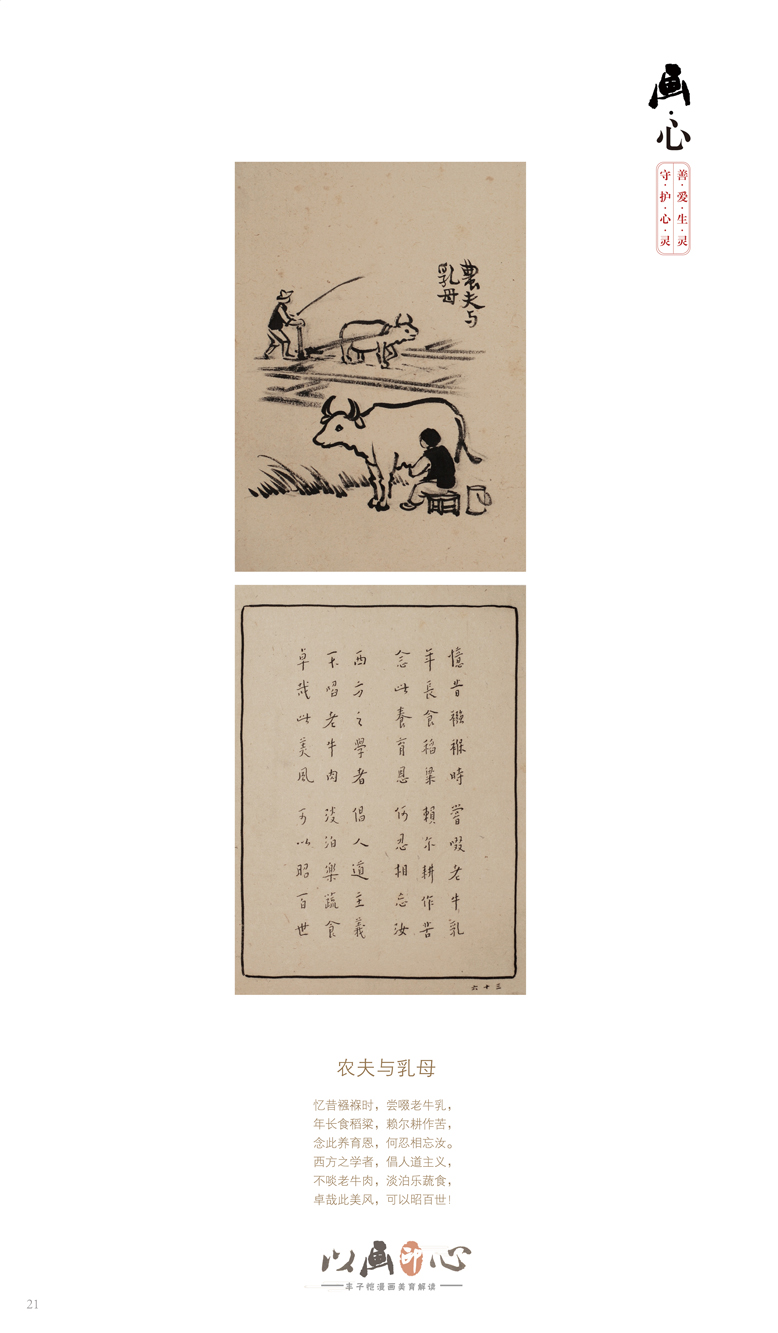 画·心
善·爱·生·灵
守·护·心·灵
農夫与
乳母
憶昔襁褓時 嘗啜老牛乳
年長食稻粱 賴尔耕作苦
念此養育恩 何忍相忘汝
西方之學者 倡人道主義
不啗老牛肉 淡泊樂蔬食
卓哉此美風 可以昭百世
三十六
农夫与乳母
忆昔襁褓时，尝啜老牛乳，
年长食稻粱，赖尔耕作苦，
念此养育恩，何忍相忘汝。
西方之学者，倡人道主义，
不啖老牛肉，淡泊乐蔬食，
卓哉此美风，可以昭百世！
以画印心
丰子恺漫画美育解读
21